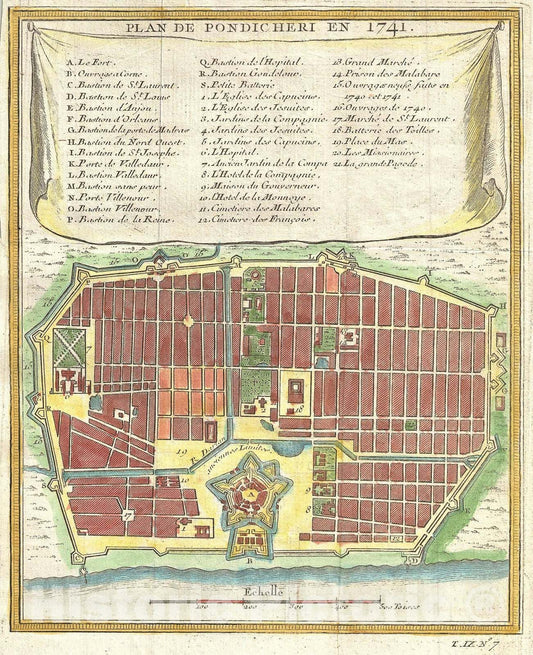 PLAN DE PONDICHERI EN 1741.
A. Le Fort.
B. Ouvrage a Corne.
C. Bastion de St. Laurent.
D. Bastion de St. Louis
E. Bastion d'Anjou
F. Bastion d'Orleans
G. Bastion de la porte de Madras
H. Bastion du Nord Ouest.
I. Bastion de St. Josephe.
K. Porte de Valledaur
L. Bastion Valledaur.
M. Bastion sans peur.
N. Porte Villenour.
O. Bastion Villenour.
P. Bastion de la Reine.
Q. Bastion de l'Hopital.
R. Bastion Goudelour.
S. Petite Batterie
1. L'Eglise des Capucins.
2. L'Eglise des Jesuites.
3. Jardins de la Compagnie
4. Jardins des Jesuites.
5. Jardins des Capucins,
6. L'Hopital.
7. Ancien Jardin de la Compe
8. L'Hotel de la Compagnie,
9. Maison du Gouverneur.
10. l'Hotel de la Monnoye.
11. Cimetiere des Malabares
12. Cimetiere des François.
13. Grand Marché.
14. Prison des Malabars
15. Ouvrages neufs faits en
1740 et 1741
16. Ouvrages de 1740.
17. Marché de St. Laurent.
18. Batterie des Toilles.
19. Place du Mas.
20. Les Missionaires
21. La grande Pagode.
15
15
O
N
H
Q
7
18
19
10
R. D
anciennes Limites.
A
9
8
17
1
E
B
D
Echelle
100 200 300 400 500 Toises
T. IX. No. 7